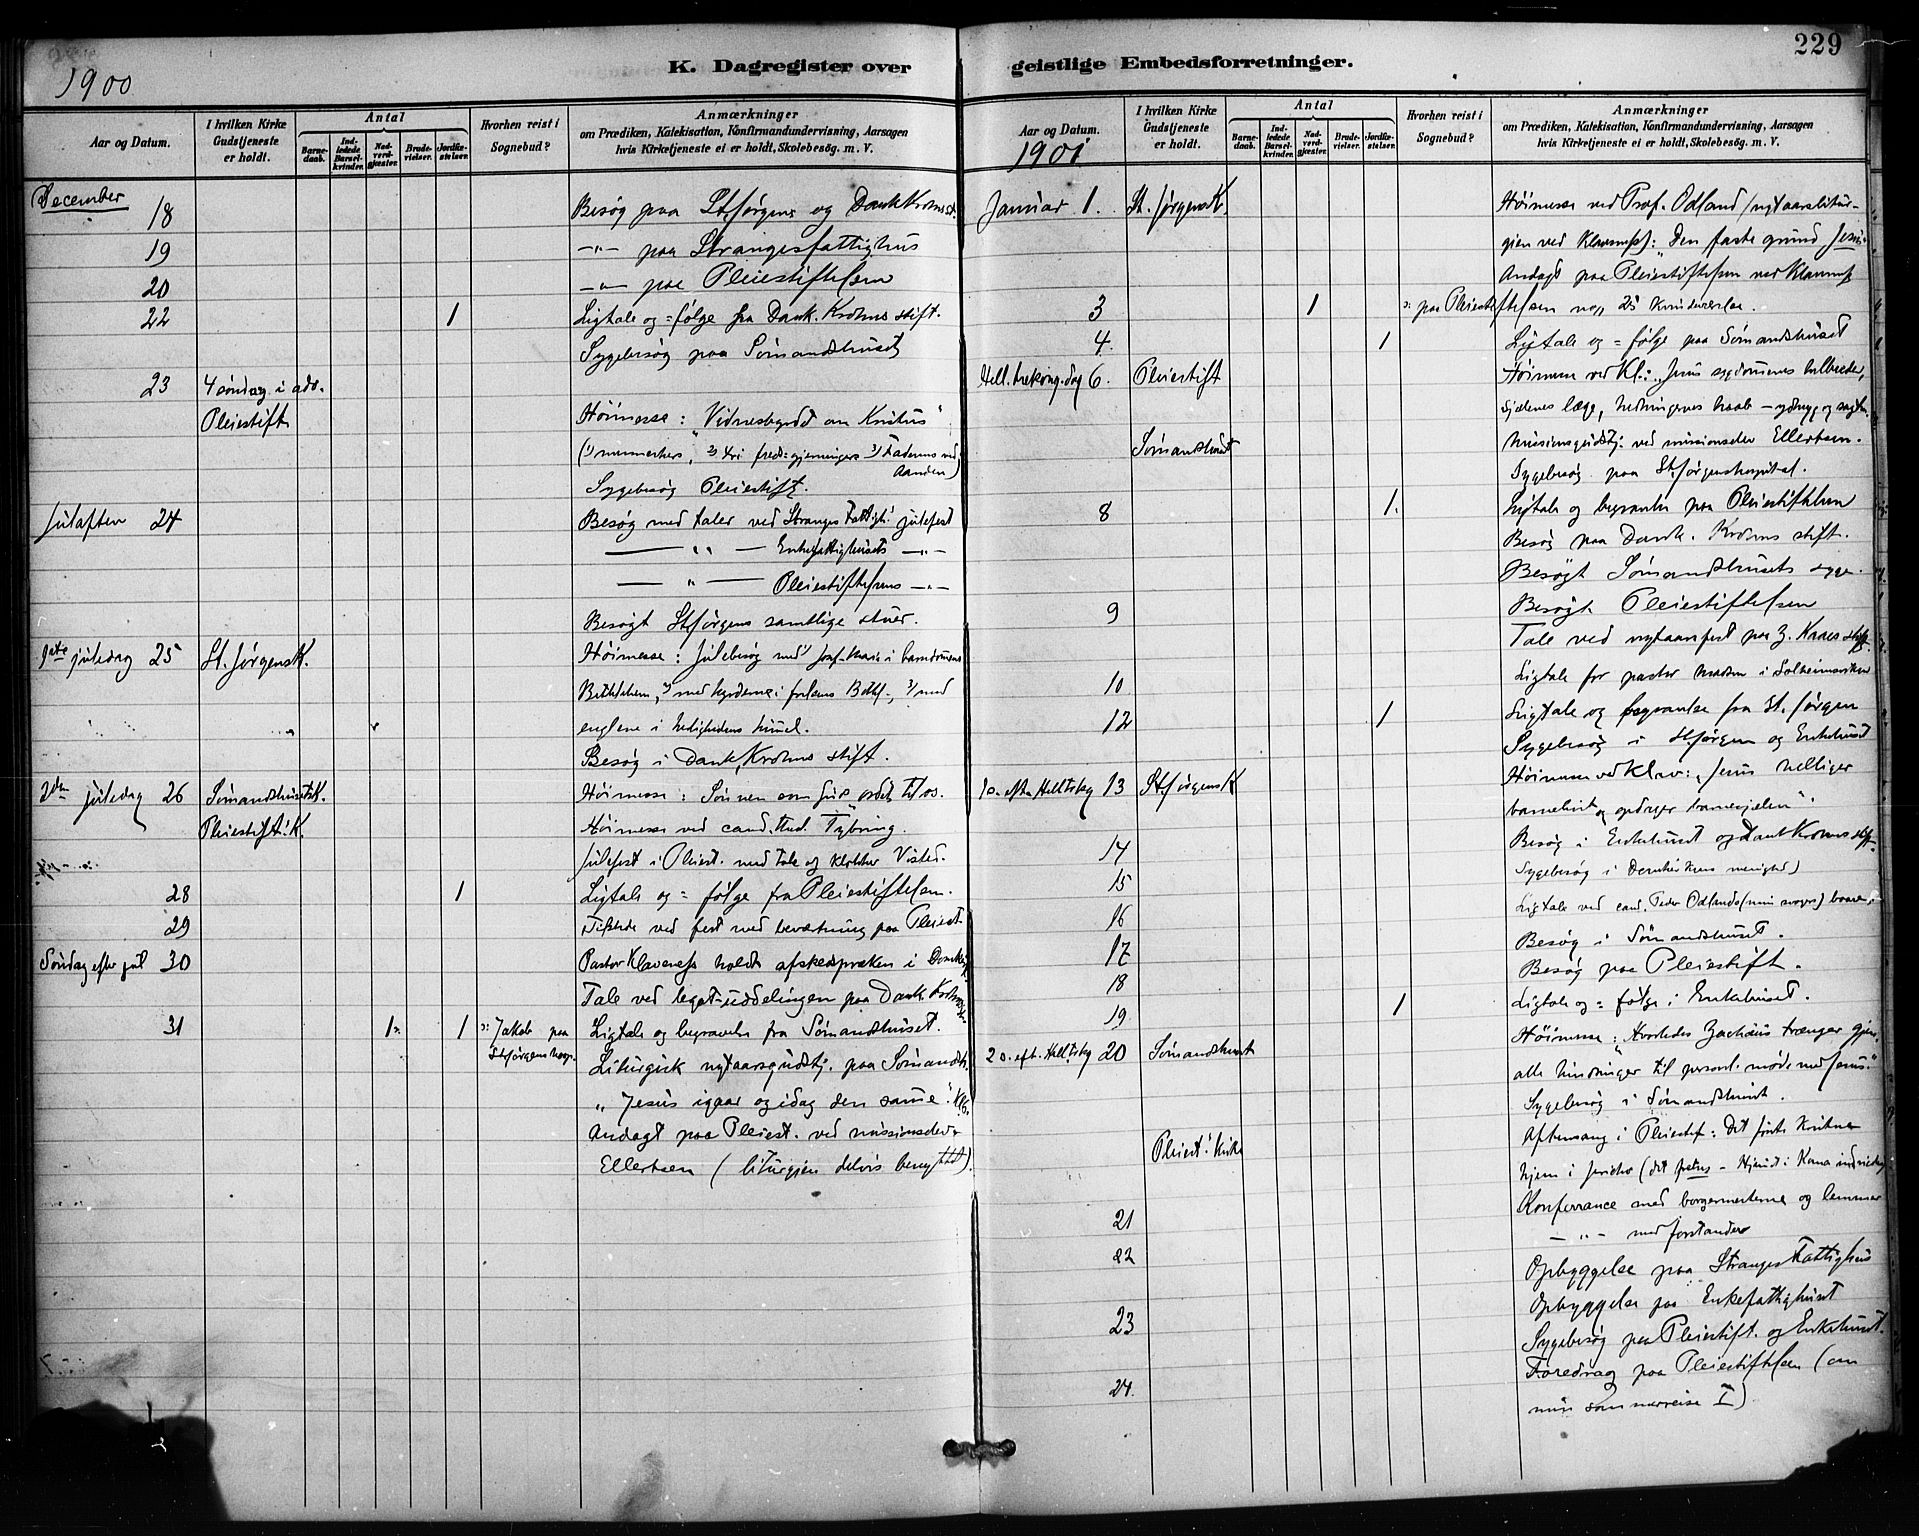 229
K. Dagregister over geistlige Embedsforretninger.
1900
Aar og Datum.
I hvilken Kirke Gudstjeneste er holdt.
Antal
Barnedaab.
Indledede Barselkvinder.
Nadverdgjester.
Brudevielser.
Jordfæstelser.
Hvorhen reist i Sognebud?
Anmærkninger
om Prædiken, Katekisation, Konfirmandundervisning, Aarsagen
hvis Kirketjeneste ei er holdt, Skolebesøg. m. V.
December
18 Besøg paa St. Jørgens og Dank Krohns st.
19 -"- paa Stranges fattighus
20 -"- paa Pleiestiftelsen
22 1 Ligtale og = følge fra Dank. Krohns stift.
Sygebesøg paa Sømandshuset
23 4 søndag i adv.
Pleiestift Høimesse: "Vidnesbyrdet om Kristus"
Aanden)
Sygebesøg Pleiestift.
Juleaften 24 Besøg med taler ved Stranges Fattigh! julefest
— " — Enkefattighusets -"-
— " — Pleiestiftelsens -"-
Besøgt St. Jørgens samtlige stuer.
1ste juledag 25 St. Jørgens K. Høimesse: Julebesøg med Josef-Maria i barndommens
Bethlehem, 2) med hyrderne i frelsens Bethl., 3) med
englene i hellighedens himmel.
Besøg i Dank. Krohns stift.
2den juledag 26 Sømandshusets K. Høimesse: Sønnen som Guds ordet til os.
Pleiestift! K. Høimesse ved cand. theol. Tybring.
Julefest i Pleiest. med tale og klokker Visted.
28 1 Ligtale og = følge fra Pleiestiftelsen.
29 Tilstede ved fest med bevertning paa Pleiest.
Søndag efter jul 30 Pastor Klaveness holdt afskedspræken i Domk
Tale ved legat-uddelingen paa Dank. Krohns
31 1. 1 ɔ: Jakob paa
St. Jørgens hosp. Ligtale og begravelse fra Sømandshuset.
Liturgisk nytaarsgudstj. paa Sømandsh.
"Jesus igaar og idag den samme". Kl 6.
Andagt paa Pleiest. ved missionselev
Ellertsen (liturgien delvis benyttet).
Aar og Datum.
1901
I hvilken Kirke Gudstjeneste er holdt.
Antal
Barnedaab.
Indledede Barselkvinder.
Nadverdgjester.
Brudevielser.
Jordfæstelser.
Hvorhen reist i Sognebud?
Anmærkninger
om Prædiken, Katekisation, Konfirmandundervisning, Aarsagen
hvis Kirketjeneste ei er holdt, Skolebesøg. m. V.
Januar 1. St. Jørgens K. Høimesse ved Prof. Odland (nytaarslitur-
gien ved Klaveness): "Den faste grund Jesus"
Andagt paa Pleiestiftelsen ved Klaveness
3 1 ɔ: paa Pleiestiftelsen no 25
4. 1 Ligtale og = følge paa Sømandshuset
Hell. trekong. dag 6. Pleiestift Høimesse ved Kl.: "Jesus sygdommenes helbreder,
sjælenes læge, hedningernes haab
Sømandshuset missionsgudstj. ved missionselev Ellertsen.
Sygebesøg paa St. Jørgens hospital.
8 1. Ligtale og begravelse paa Pleiestiftelsen
Besøg paa Dank. Krohns stift.
Besøgt Sømandshusets syge.
9 Besøgt Pleiestiftelsen
Tale ved nytaarsfest paa Z. Kraes stift.
10 Ligtale for pastor Madsen i Solheimsviken
12 1 Ligtale og begravelse fra St. Jørgen
Sygebesøg i St. Jørgen og Enkehuset
1 s. eft. Helltrkg 13 St. Jørgens K Høimesse ved Klav: "Jesus helliger
barnelivet og opdrager barnesjælen".
14 Besøg i Enkehuset og Dank Krohns stift.
15 Sygebesøg i Domkirkens menighed)
16 Ligtale ved cand. Peder Odlands baare.
17 Besøg i Sømandshuset.
18 Besøg paa Pleiestift.
19 1 Ligtale og = følge i Enkehuset.
2 s. eft. Helltrkg 20 Sømandshuset Høimesse: "Hvorledes Zachæus trænger gjen.
alle hindringer til personl. møde med Jesus."
Sygebesøg i Sømandshuset.
Pleiest! Kirke Aftensang i Pleiestif: Det første kristne
hjem i Jericho
21 Konferrance med borgermesterne og lemmer
-"- med forstander
22 Opbyggelse paa Stranges Fattighus
Opbyggelse paa Enkefattighuset
23 Sygebesøg paa Pleiestift. og Enkehuset.
24. Foredrag paa Pleiestiftelsen (om
min sommerreise I)